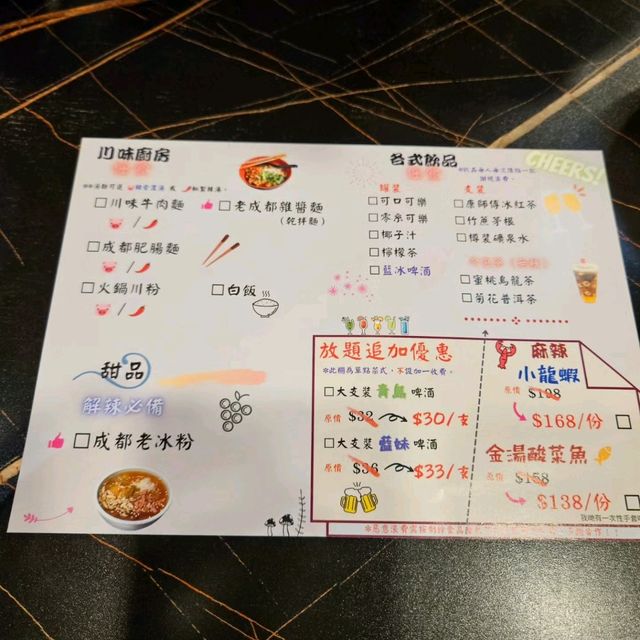 川味廚房
任食
川味牛肉麵
老成都雜醬麵
(乾拌麵)
成都肥腸麵
火鍋川粉
白飯
甜品
解辣必備
成都老冰粉
各式飲品
任食
CHEERS!
罐裝
可口可樂
零系可樂
椰子汁
檸檬茶
藍冰啤酒
支裝
康師傅冰紅茶
竹蔗茅根
樽裝礦泉水
蜜桃烏龍茶
菊花普洱茶
放題追加優惠
*此欄為單點菜式,不設加一收費。
大支裝 青島 啤酒
原價 $32 $30/支
大支裝 藍妹 啤酒
原價 $36 $33/支
麻辣
小龍蝦
原價 $198
$168/份
金湯酸菜魚
原價 $158
$138/份
我哋有一次性手套